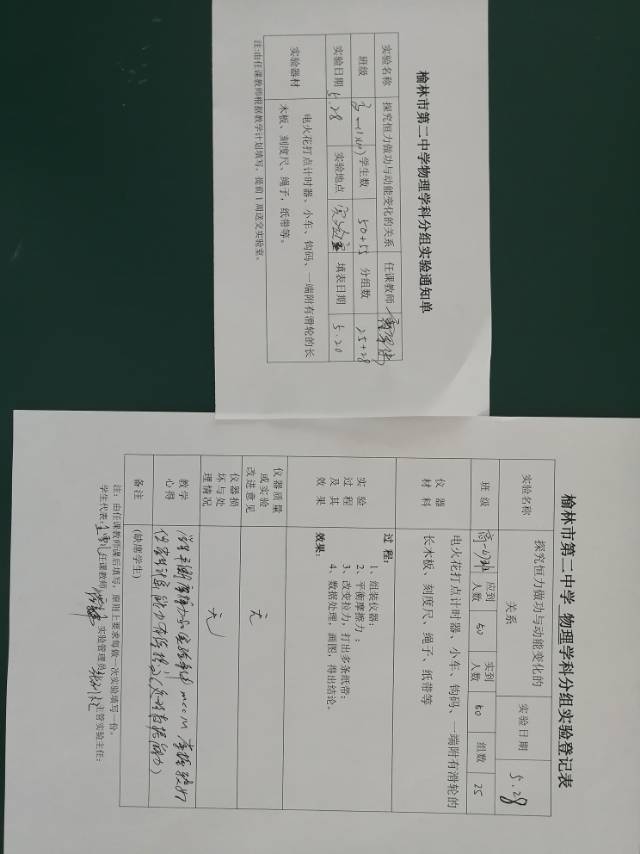 榆林市第二中学物理学科分组实验通知单
实验名称 探究恒力做功与动能变化的关系 任课教师
班级 学生数 50+55 分组数 25+28
实验日期 5.28 实验地点 实验室 填表日期 5.20
实验器材 电火花打点计时器、小车、钩码、一端附有滑轮的长
木板、刻度尺、绳子，纸带等。
注:由任课教师根据教学计划填写，提前1周送交实验室。
榆林市第二中学 物理学科分组实验登记表
实验名称 探究恒力做功与动能变化的
关系 实验日期 5.28
班级 应到
人数 实到
人数 组数 25
仪器
材料 电火花打点计时器、小车、钩码、一端附有滑轮的
长木板、刻度尺、绳子、纸带等
实验
过程
及其
效果
过程:
1、组装仪器:
2、平衡摩擦力;
3、改变拉力，打出多条纸带;
4、数据处理，画图，得出结论。
效果:
仪器质量
或实验
改进意见 无
仪器损
坏与处
理情况 无
教学
心得
备注 (缺席学生)
注：由任课教师课后填写，原则上要求每做一次实验填写一份。
学生代表: 任课教师: 实验管理员: 主管实验主任: